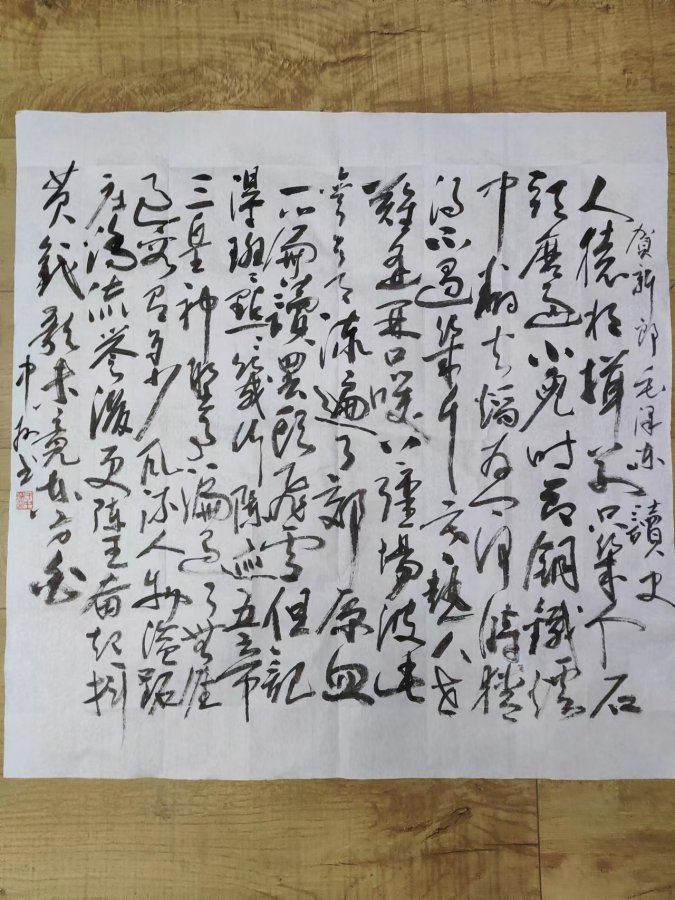 賀新郎 毛泽东 讀史
人猿相揖别只几个石
頭磨过小兒时节銅鐵爐
中翻火焰为问何时猜
得不過几千寒熱人世
難逢開口笑上疆場彼此
弯弓月流遍了郊原血
一篇讀罢頭飛雪但記
得斑斑點點几行陳迹五帝
三皇神聖事騙過了無涯
过客有多少风流人物盗跖
庄蹻流誉後更陈王奋起揮
黄钺歌未竟東方白
书